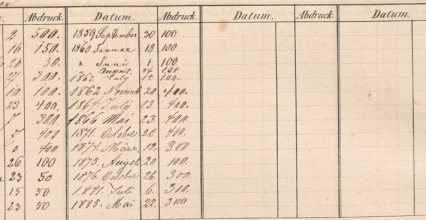 Abdruck. Datum. Abdruck. Datum. Abdruck. Datum.
2 500. 1859 September 30 100
16 150. 1860 Januar 18 100
30. " Juni 1 100
August 24 100
27 200. Juli 12 100
10 100 1862 Novemb 20 400.
23 400. 1864 July 13 400.
300 1866 Mai 23 400.
400 1871. October 20 400.
3 400 1872 März 19. 300
26 100 1875. August 20 100.
23 50 1876 October 26 300.
15 50 1881 Juli 6. 300.
23 50. 1885. Mai 22. 300